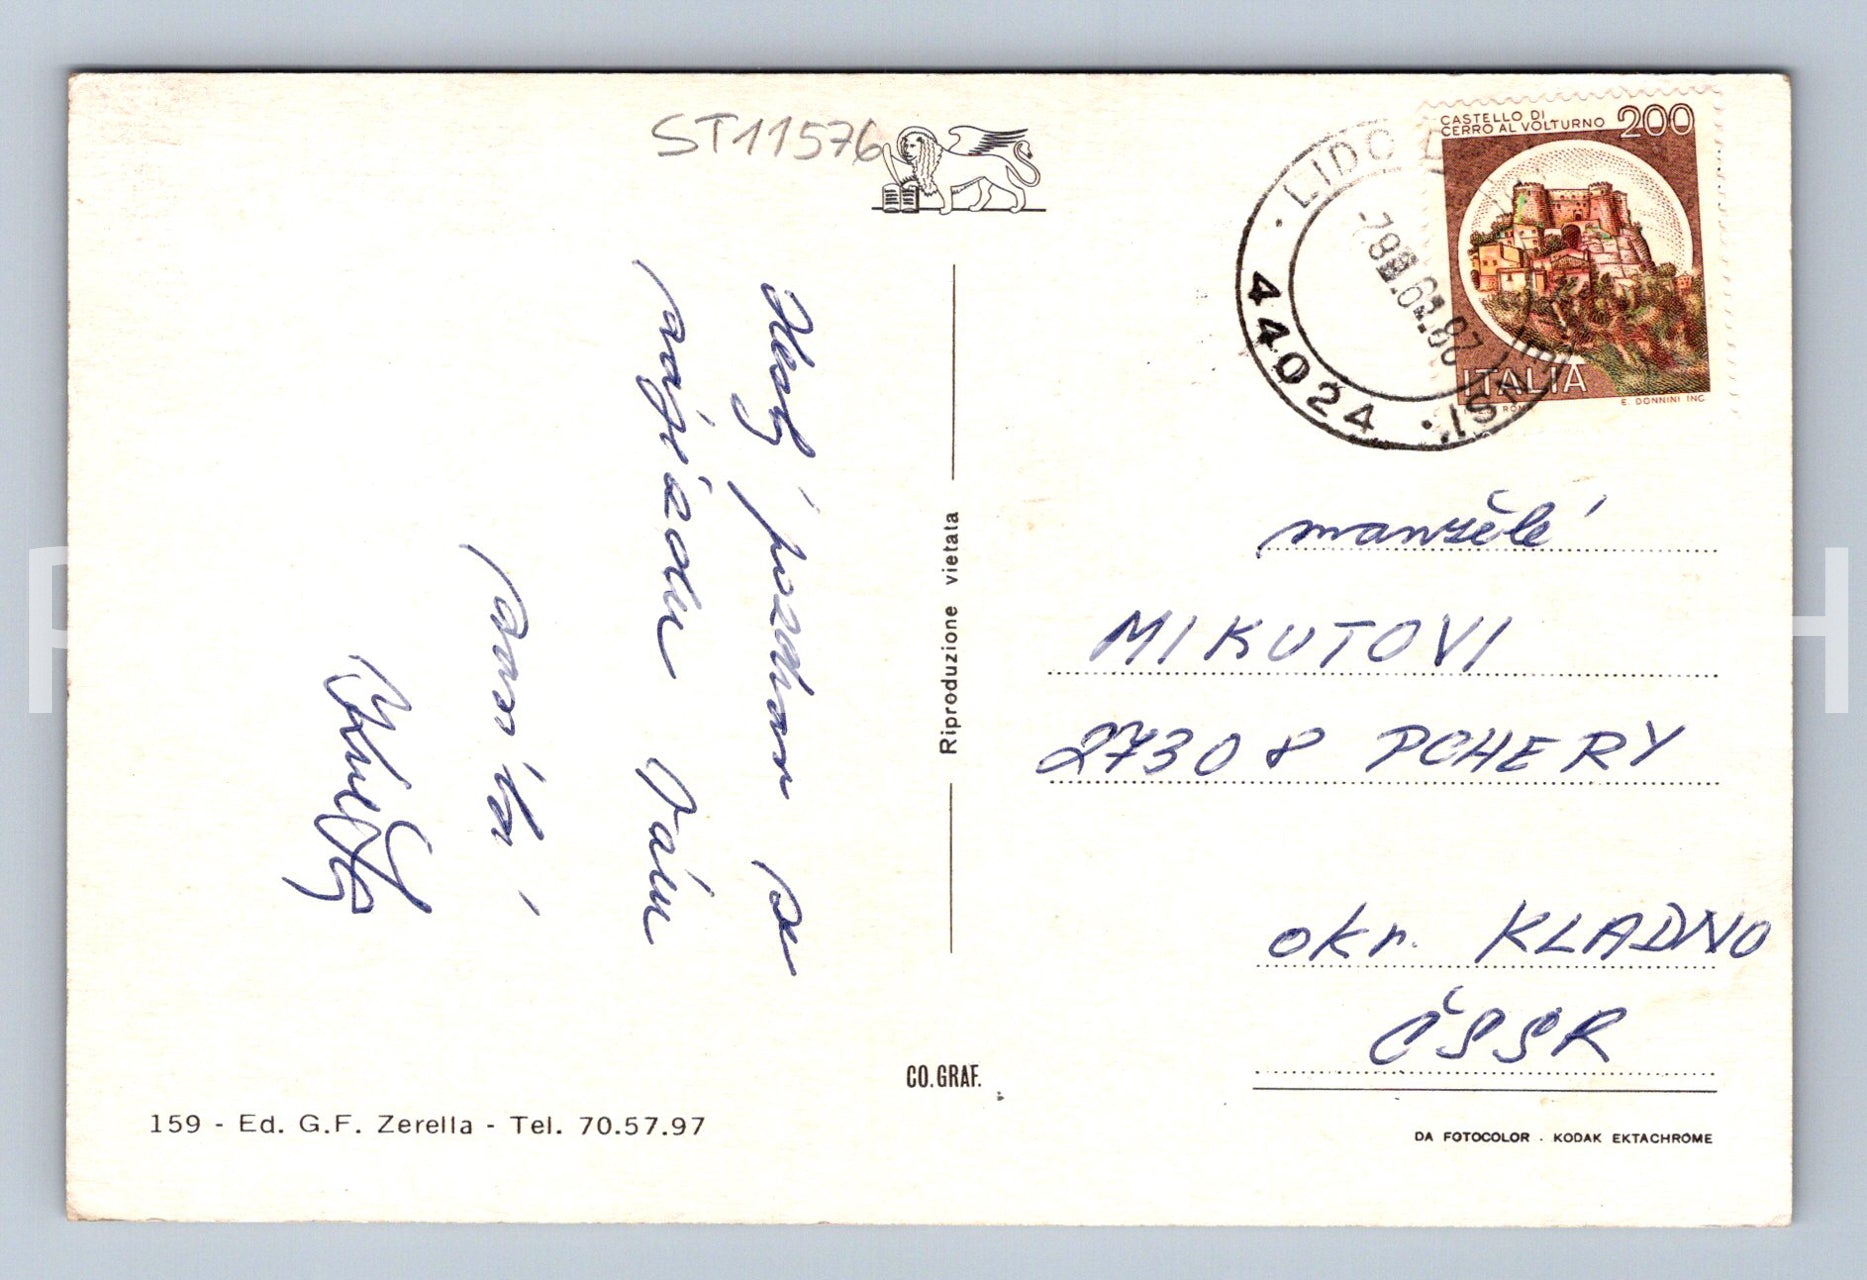 ST11576
CASTELLO DI
CERRO AL VOLTURNO 200
ITALIA
ROMA
E. DONNINI INC.
LIDO
44024
Hezký pozdrav se
zájezdu Vám
posílá
manželé
MIKUTOVI
27308 PCHERY
okr. KLADNO
ČSSR
Riproduzione vietata
CO. GRAF.
159 - Ed. G.F. Zerella - Tel. 70.57.97
DA FOTOCOLOR - KODAK EKTACHROME